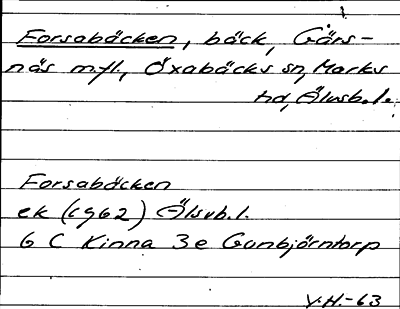 Forsabäcken, bäck, Gärs-
näs m.fl., Öxabäcks sn, Marks
hd, Älvsb.l.
Forsabäcken
ek (1962) Älsvb.l.
6 C Kinna 3e Gunbjörntorp
V.H.-63